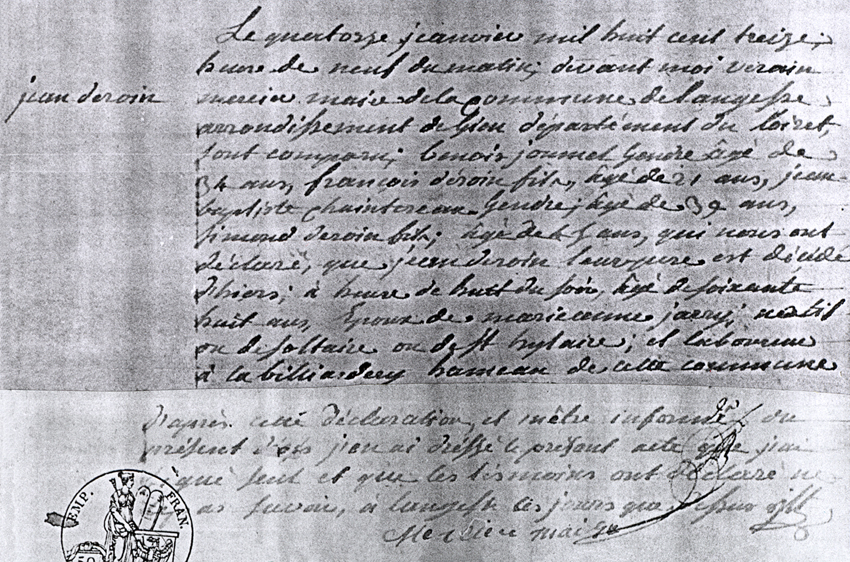 jean deroin
Le quatorze jeanvier mil huit cent treize,
heure de neuf du matin; devant moi
maire de la commune de langesse
arrondissement de gien département du loiret,
sont comparu; benois gendre âgé de
34 ans, francois deroin fils, âgé de 21 ans, jean
baptiste gendre; âgé de 39 ans,
simond deroin fils; âgé de ans, qui nous ont
déclaré, que jean deroin leur pere est décédé
d'hiers; à heure de huit du soir, âgé de soixante
huit ans, Epoux de marieanne
ou de ou de st hylaire; et laboureur
à la hameau de cette commune
d'après cette déclaration, et mêtre informé du
présent j'en ai dressé le présent acte que j'ai
signé seul et que les témoins ont déclaré ne
pas savoir, à langesse les jours que dessus
maire
EMP. FRAN.